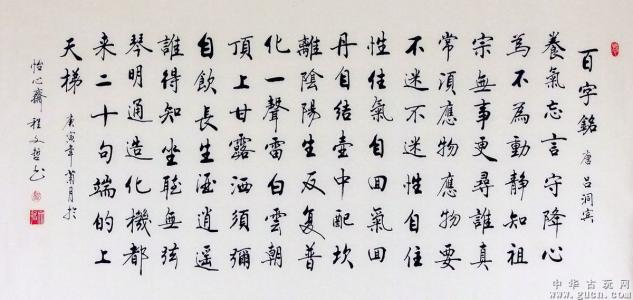 百字銘 唐 吕洞宾
養氣忘言守降心
為不為動静知祖
宗無事更尋誰真
常須應物應物要
不迷不迷性自住
性住氣自回氣回
丹自結壺中配坎
離陰陽生反复普
化一聲雷白雲朝
頂上甘露洒須彌
自飲長生酒逍遥
誰得知坐聼無弦
琴明通造化機都
来二十句端的上
天梯 庚寅年菊月於
怡心齋程文哲书
中华古玩网
www.gucn.com